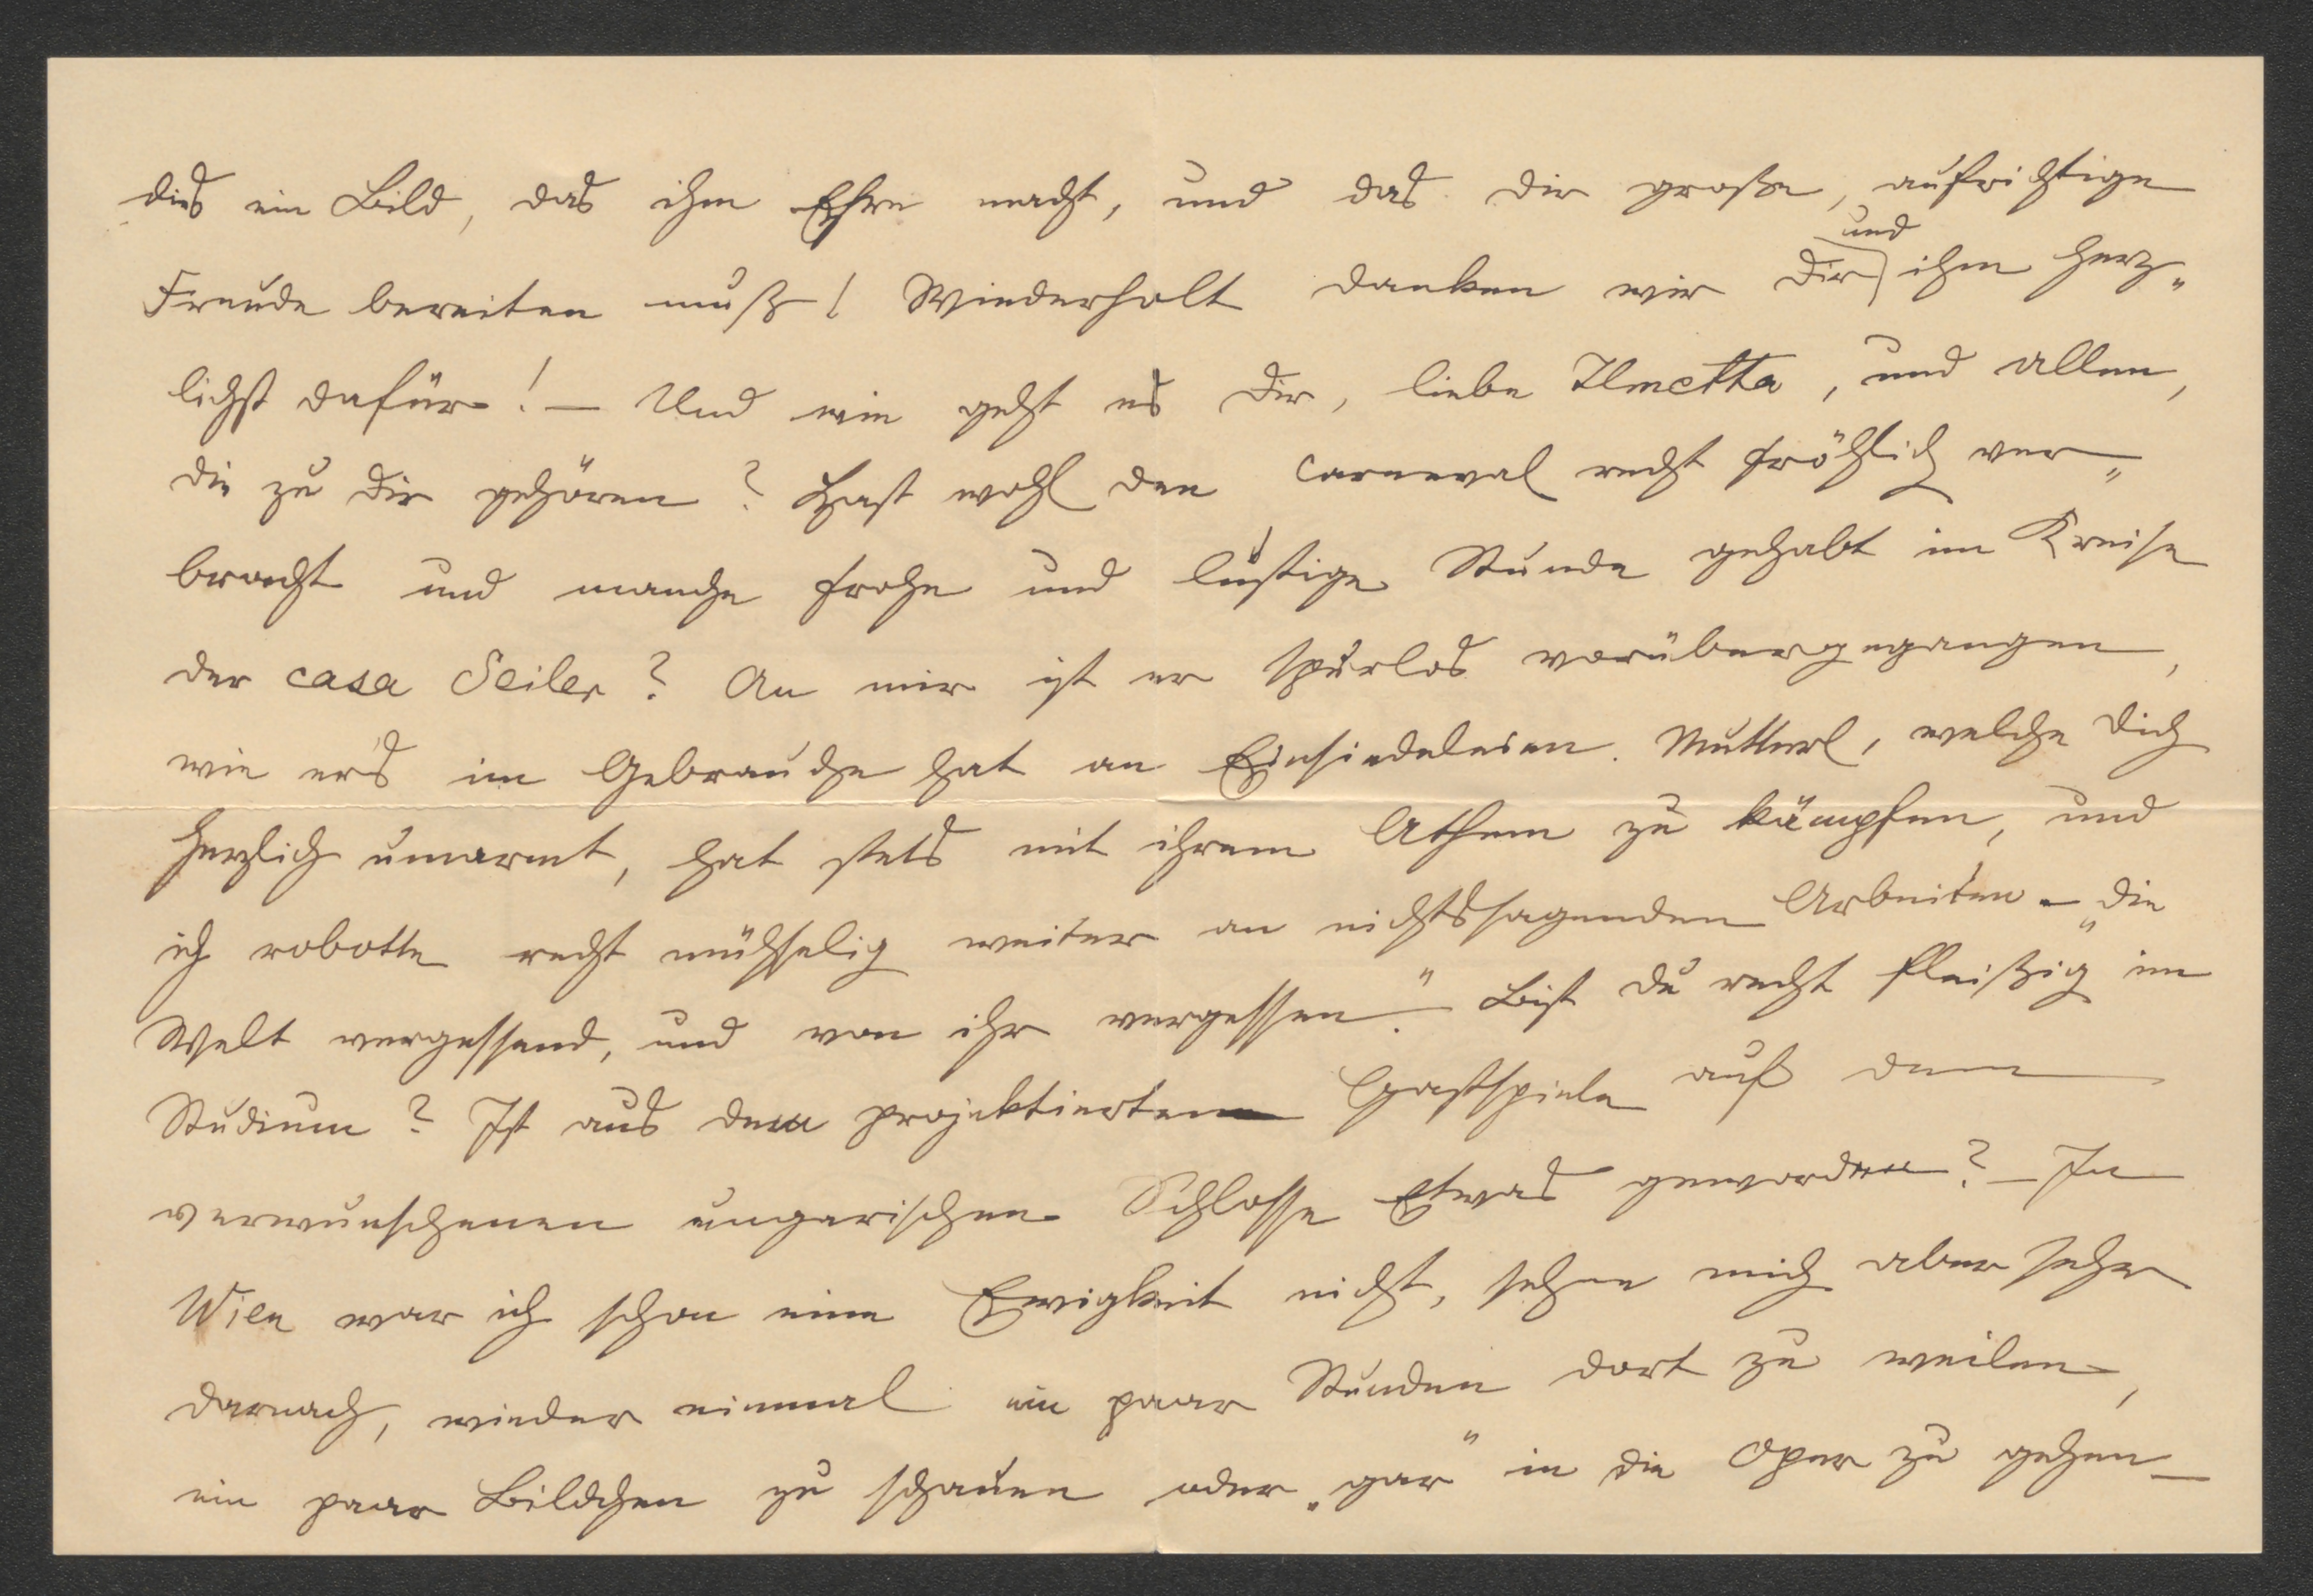 dies ein Bild, das ihm Ehre macht, und das Dir große, aufrichtige
Freude bereiten muß! Wiederholt danken wir Dir und ihm herz„
lichst dafür! — Und wie geht es Dir, liebe Ilmetta, und allen,
die zu Dir gehören? Hast wohl den Carneval recht fröhlich ver„
bracht und manche frohe und lustige Stunde gehabt im Kreise
der casa Seiler? An mir ist er spurlos vorübergegangen,
wie er's im Gebrauche hat an Einsiedeleien. Mutterl, welche Dich
herzlich umarmt, hat stets mit ihrem Athem zu kämpfen, und
ich robotte recht mühselig weiter an nichtssagenden Arbeiten – „die
Welt vergessend, und von ihr vergessen“. Bist Du recht fleißig im
Studium? Ist aus dem projektierten Gastspiele auf dem
verwunschenen ungarischen Schlosse Etwas geworden? – In
Wien war ich schon eine Ewigkeit nicht, sehne mich aber sehr
darnach, wieder einmal ein paar Stunden dort zu weilen,
ein paar Bildchen zu schauen oder „gar“ in die Oper zu gehen –